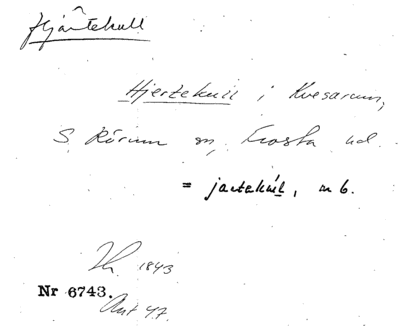 Hjärtekull
Hjertekull i Kvesarum,
S. Rörum sn, Frosta hd.
= jartekúll, m 6.
1843
Nr 6743.
Ant 47.